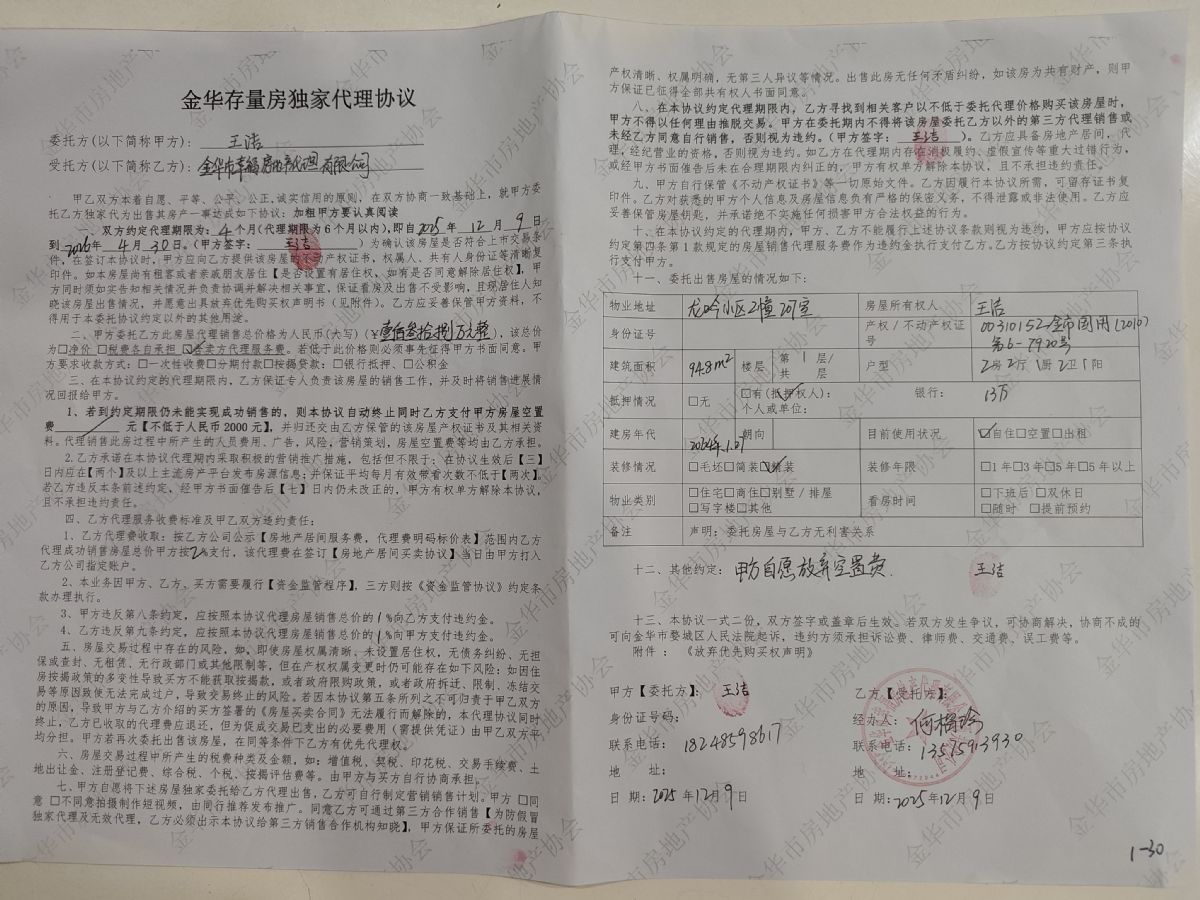 金华存量房独家代理协议
委托方(以下简称甲方): 王洁
受托方(以下简称乙方): 金华市幸福房地产代理有限公司
甲乙双方本着自愿、平等、公平、公正,诚实信用的原则,在双方协商一致基础上,就甲方委
托乙方独家代为出售其房产一事达成如下协议:加粗甲方要认真阅读
一、双方约定代理期限为: 4 个月(代理期限为6个月以内),即自 2025 年 12 月 9 日
到 2026 年 4 月 30 日。(甲方签字: 王洁 )为确认该房屋是否符合上市交易条
件,在签订本协议时,甲方应向乙方提供该房屋的不动产权证书,权属人、共有人身份证等清晰复
印件。如本房屋尚有租客或者亲戚朋友居住【是否设置有居住权,如有是否同意解除居住权】,甲
方同时须如实告知相关情况并负责协调并解决相关事宜,保证看房及出售不受影响,且现居住人知
晓该房屋出售情况,并愿意出具放弃优先购买权声明书(见附件)。乙方应妥善保管甲方资料,不
得用于本委托协议约定以外的其他用途。
二、甲方委托乙方此房屋代理销售总价格为人民币(大写)(¥壹佰叁拾捌万元整),该总价
为☐净价 ☐税费各自承担 ☑含卖方代理服务费。若低于此价格则必须事先征得甲方书面同意。甲
方要求收款方式: ☐一次性收费☐分期付款☐按揭贷款: ☐银行抵押、☐公积金
三、在本协议约定的代理期限内,乙方保证专人负责该房屋的销售工作,并及时将销售进展情
况回报给甲方。
1、若到约定期限仍未能实现成功销售的,则本协议自动终止同时乙方支付甲方房屋空置
费 / 元【不低于人民币2000元】,并归还交由乙方保管的该房屋产权证书及其相关资
料。代理销售此房过程中所产生的人员费用、广告,风险,营销策划,房屋空置费等均由乙方承担。
2.乙方承诺在本协议代理期内采取积极的营销推广措施,包括但不限于:在协议生效后【三】
日内应在【两个】及以上主流房产平台发布房源信息;并保证平均每月有效带看次数不低于【两次】。
若乙方违反本条前述约定,经甲方书面催告后【七】日内仍未改正的,甲方有权单方解除本协议,
且不承担违约责任。
四、乙方代理服务收费标准及甲乙双方违约责任:
1、乙方代理费收取:按乙方公司公示【房地产居间服务费,代理费明码标价表】范围内乙方
代理成功销售房屋总价甲方按2%支付,该代理费在签订【房地产居间买卖协议】当日由甲方打入
乙方公司指定账户。
2、本业务因甲方、乙方、买方需要履行【资金监管程序】,三方则按《资金监管协议》约定条
款办理执行。
3、甲方违反第八条约定,应按照本协议代理房屋销售总价的1%向乙方支付违约金。
4、乙方违反第九条约定,应按照本协议代理房屋销售总价的1%向甲方支付违约金。
五、房屋交易过程中存在的风险,如,即使房屋权属清晰、未设置居住权,无债务纠纷、无担
保或查封、无租赁、无行政部门或其他限制等,但在产权权属变更时仍可能存在如下风险:如因住
房按揭政策的多变性导致买方不能获取按揭款,或者政府限购政策,或者政府拆迁、限制、冻结交
易等原因致使无法完成过户,导致交易终止的风险。若因本协议第五条所列之不可归责于甲乙双方
的原因,导致甲方与乙方介绍的买方签署的《房屋买卖合同》无法履行而解除的,本代理协议同时
终止,乙方已收取的代理费应退还,但为促成交易已支出的必要费用(需提供凭证)由甲乙方双方平
均分担。甲方若再次委托出售该房屋,在同等条件下乙方有优先代理权。
六、房屋交易过程中所产生的税费种类及金额,如:增值税,契税、印花税、交易手续费、土
地出让金、注册登记费、综合税、个税、按揭评估费等。由甲方与买方自行协商承担。
七、甲方自愿将下房屋独家委托给乙方代理出售,乙方可自行制定营销销售计划。甲方 ☐同
意 ☐不同意拍摄制作短视频,由同行推荐发布推广。同意乙方可通过第三方合作销售【为防假冒
独家代理及无效代理,乙方必须出示本协议给第三方销售合作机构知晓】,甲方保证所委托的房屋
产权清晰、权属明确,无第三人异议等情况。出售此房无任何矛盾纠纷,如该房为共有财产,则甲
方保证已征得全部共有权人书面同意。
八、在本协议约定代理期限内,乙方寻找到相关客户以不低于委托代理价格购买该房屋时,
甲方不得以任何理由推脱交易。甲方在委托期内不得将该房屋委托乙方以外的第三方代理销售或
未经乙方同意自行销售,否则视为违约。(甲方签字: 王洁 )。乙方应具备房地产居间,代
理,经纪营业的资格,否则视为违约。如乙方在代理期内存在消极履约、虚假宣传等重大过错行为,
或经甲方书面催告后未在合理期限内纠正的,甲方有权单方解除本协议,且不承担违约责任。
九、甲方自行保管《不动产权证书》等一切原始文件。乙方因履行本协议所需,可留存证书复
印件。乙方对获悉的甲方个人信息及房屋信息负有严格的保密义务,不得泄露或非法使用。乙方应
妥善保管房屋钥匙,并承诺绝不实施任何损害甲方合法权益的行为。
十、在本协议约定的代理期内,甲方、乙方不能履行上述协议条款则视为违约,甲方应按协议
约定第四条第1款规定的房屋销售代理服务费作为违约金执行支付乙方。乙方按协议约定第三条执
行支付甲方。
十一、委托出售房屋的情况如下:
物业地址 龙吟小区2幢 室 房屋所有权人 王洁
身份证号 产权/不动产权证号 00310152 金市国用(2010)第6-7920号
建筑面积 94.8m² 楼层 第 1 层/共 层 户型 2房2厅1厨2卫1阳
抵押情况 ☐无 ☑有(抵押权人): 个人或单位: 银行: 13万
建房年代 朝向 目前使用状况 ☑自住☐空置☐出租
装修情况 ☐毛坯☐简装☑精装 装修年限 ☐1年☐3年☐5年☐5年以上
物业类别 ☐住宅☐商住☐别墅/排屋 ☐写字楼☐其他 看房时间 ☐下班后 ☐双休日 ☐随时 ☐提前预约
备注 声明:委托房屋与乙方无利害关系
十二、其他约定: 甲方自愿放弃空置费. 王洁
十三、本协议一式二份,双方签字或盖章后生效。若双方发生争议,可协商解决,协商不成的
可向金华市婺城区人民法院起诉,违约方须承担诉讼费、律师费、交通费、误工费等。
附件 : 《放弃优先购买权声明》
甲方【委托方】: 王洁 乙方【受托方】:
身份证号码: 经办人: 何梅玲
联系电话: 18248598617 联系电话: 13575913930
地 址: 地 址:
日 期: 2025年12月9日 日 期: 2025年12月9日
1-30